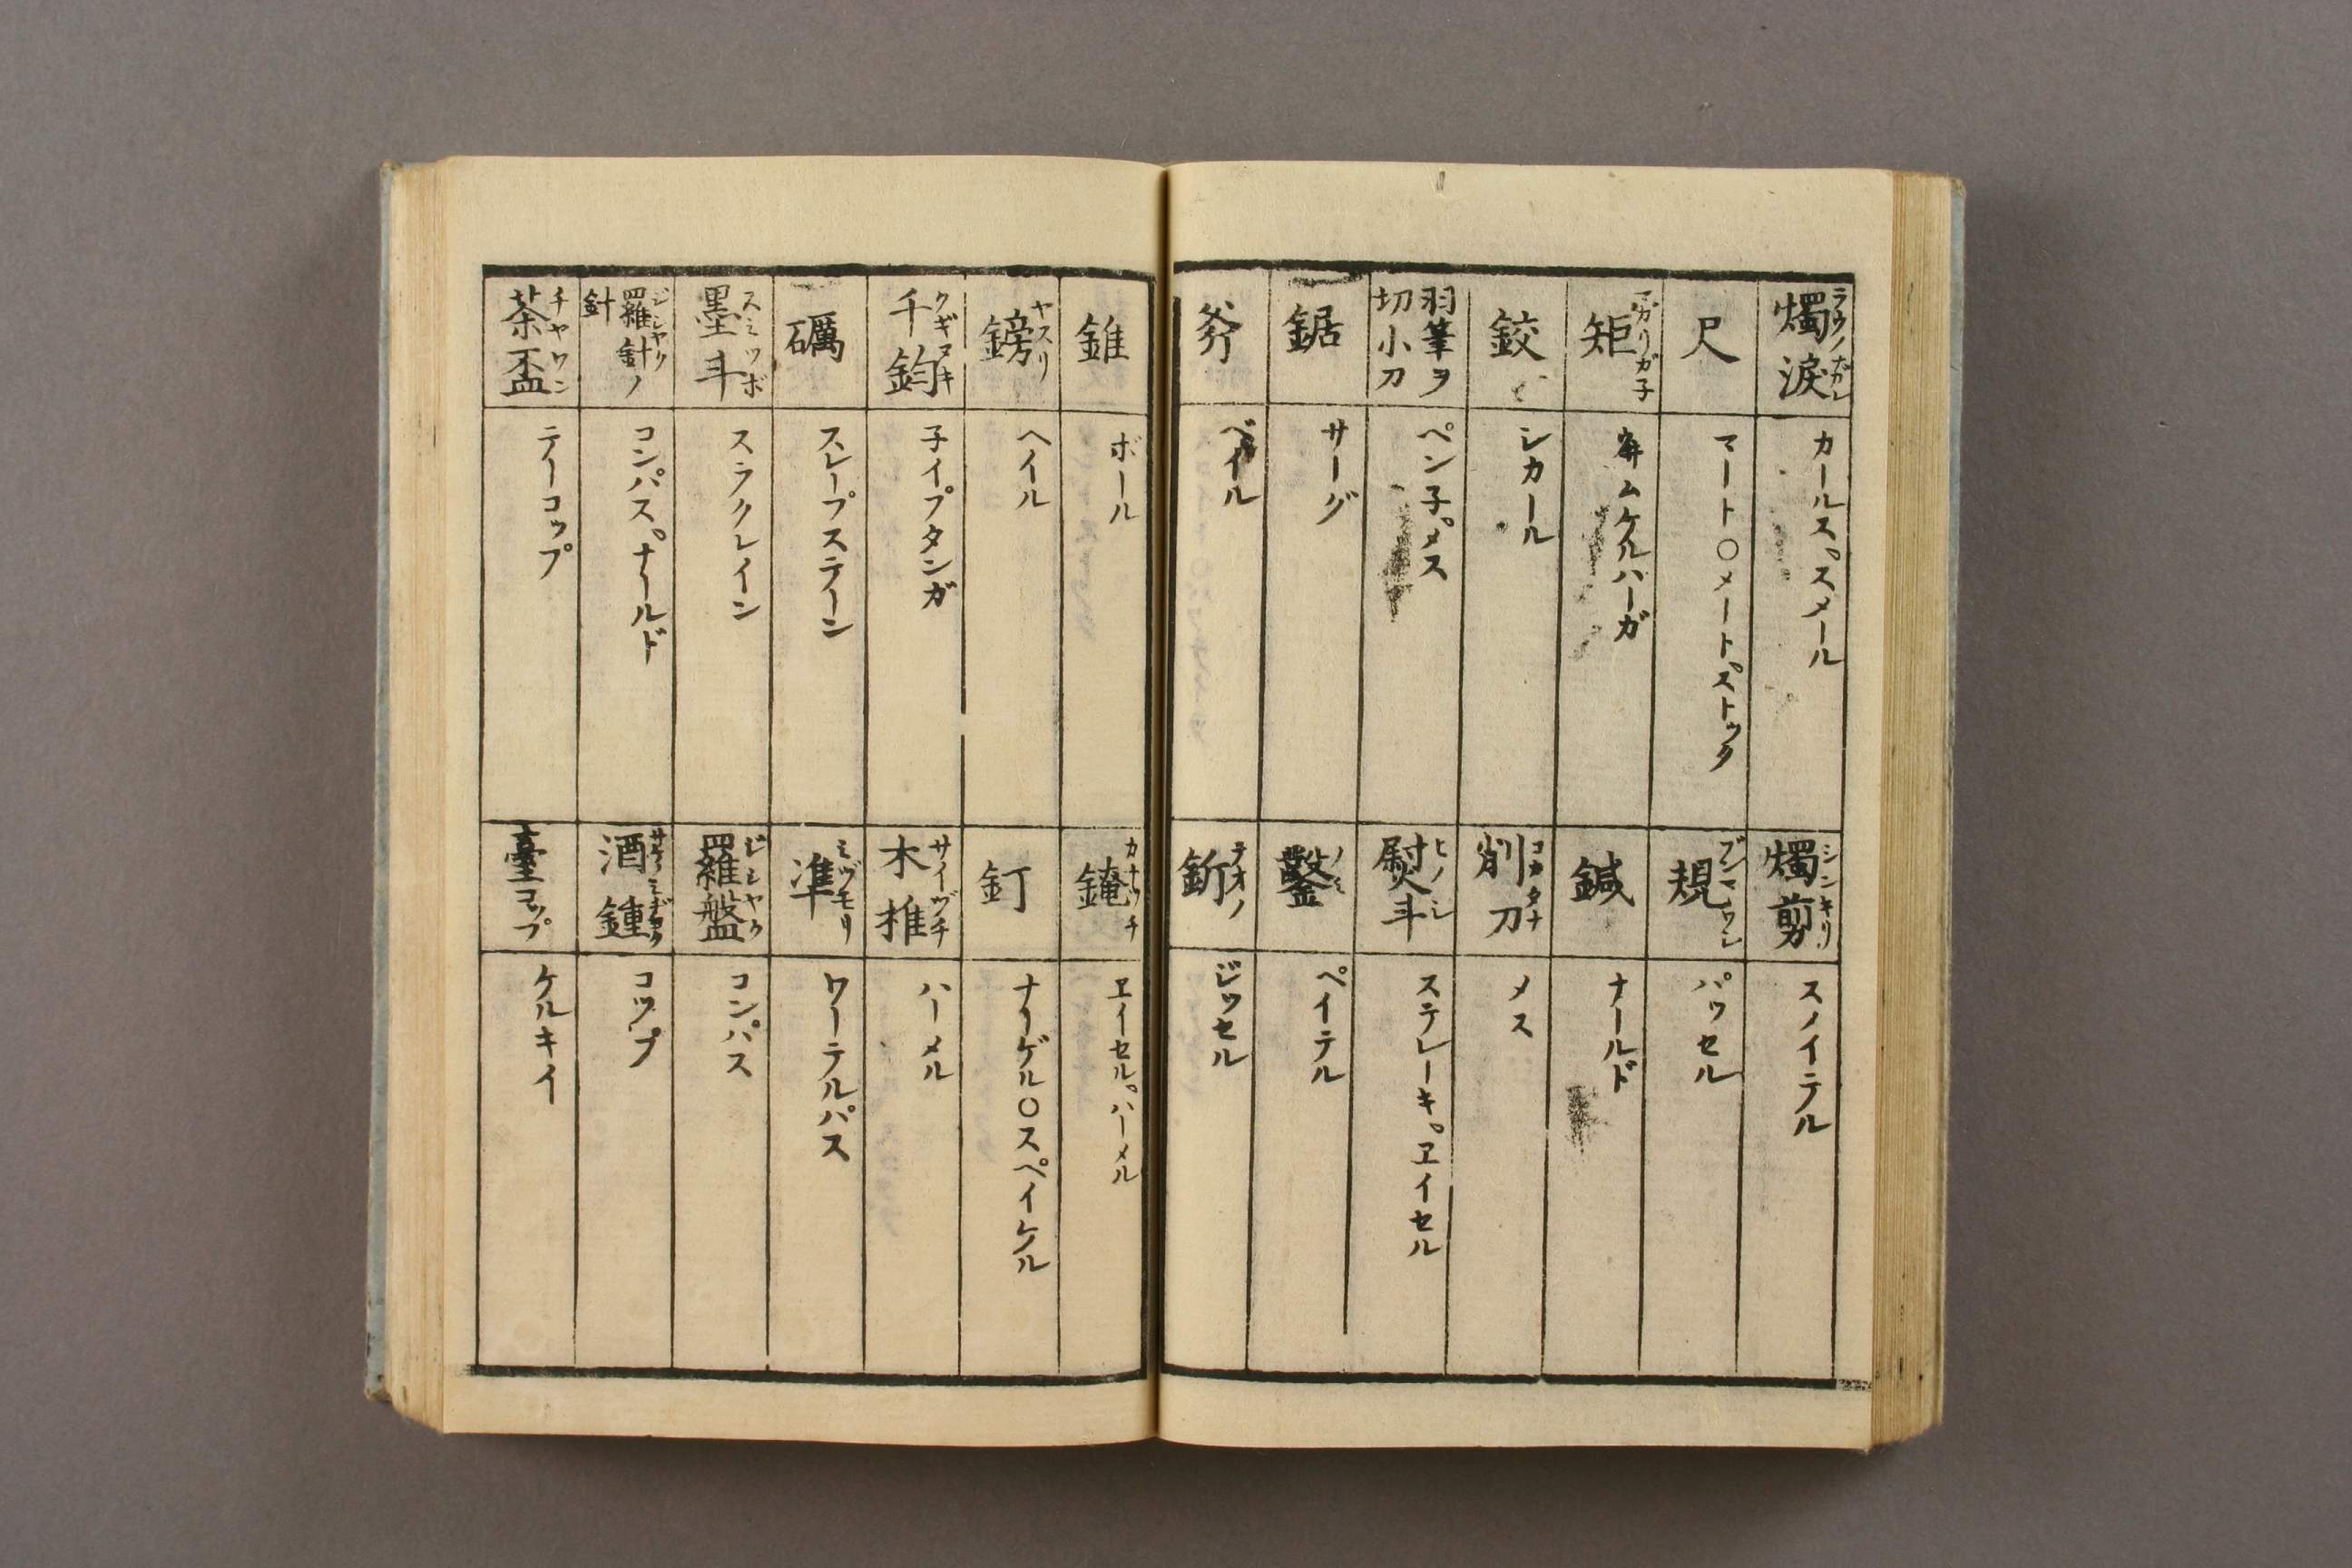 燭涙 ラウノナガレ
カールス゜スメール
尺
マート〇メートストック
矩 マガリガ子
ムケルハーガ
鉸
シカール
羽筆ヲ切小刀
ペン子゜メス
鋸
サーグ
斧
ベイル
燭剪 シンキリ
スノイテル
規 ブンマワシ
パッセル
鍼
ナールド
削刀 コガタナ
メス
熨斗 ヒノシ
ステレーキ゜ヱイセル
鑿 ノミ
ペイテル
釿 テオノ
ジッセル
錐
ボール
鎊 ヤスリ
ヘイル
千鈞 クギヌキ
子イプタンガ
礪
スレープステーン
墨斗 スミツボ
スラクレイン
羅針ノ針 ジシヤク
コンパス゜ナールド
茶盃 チヤワン
テーコップ
鏀 カナヅチ
ヱイセル゜ハーメル
釘
ナーゲル〇スペイケル
木推 サイヅチ
ハーメル
準 ミヅモリ
ワーテルパス
羅盤 ジシヤク
コンパス
酒鍾
コップ
臺コップ
ケルキイ